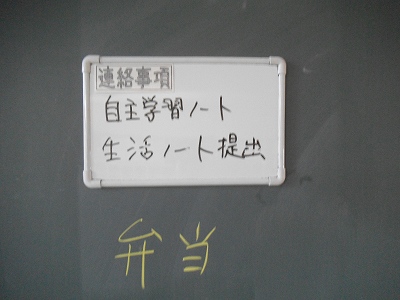 連絡事項
自主学習ノート
生活ノート提出
弁当